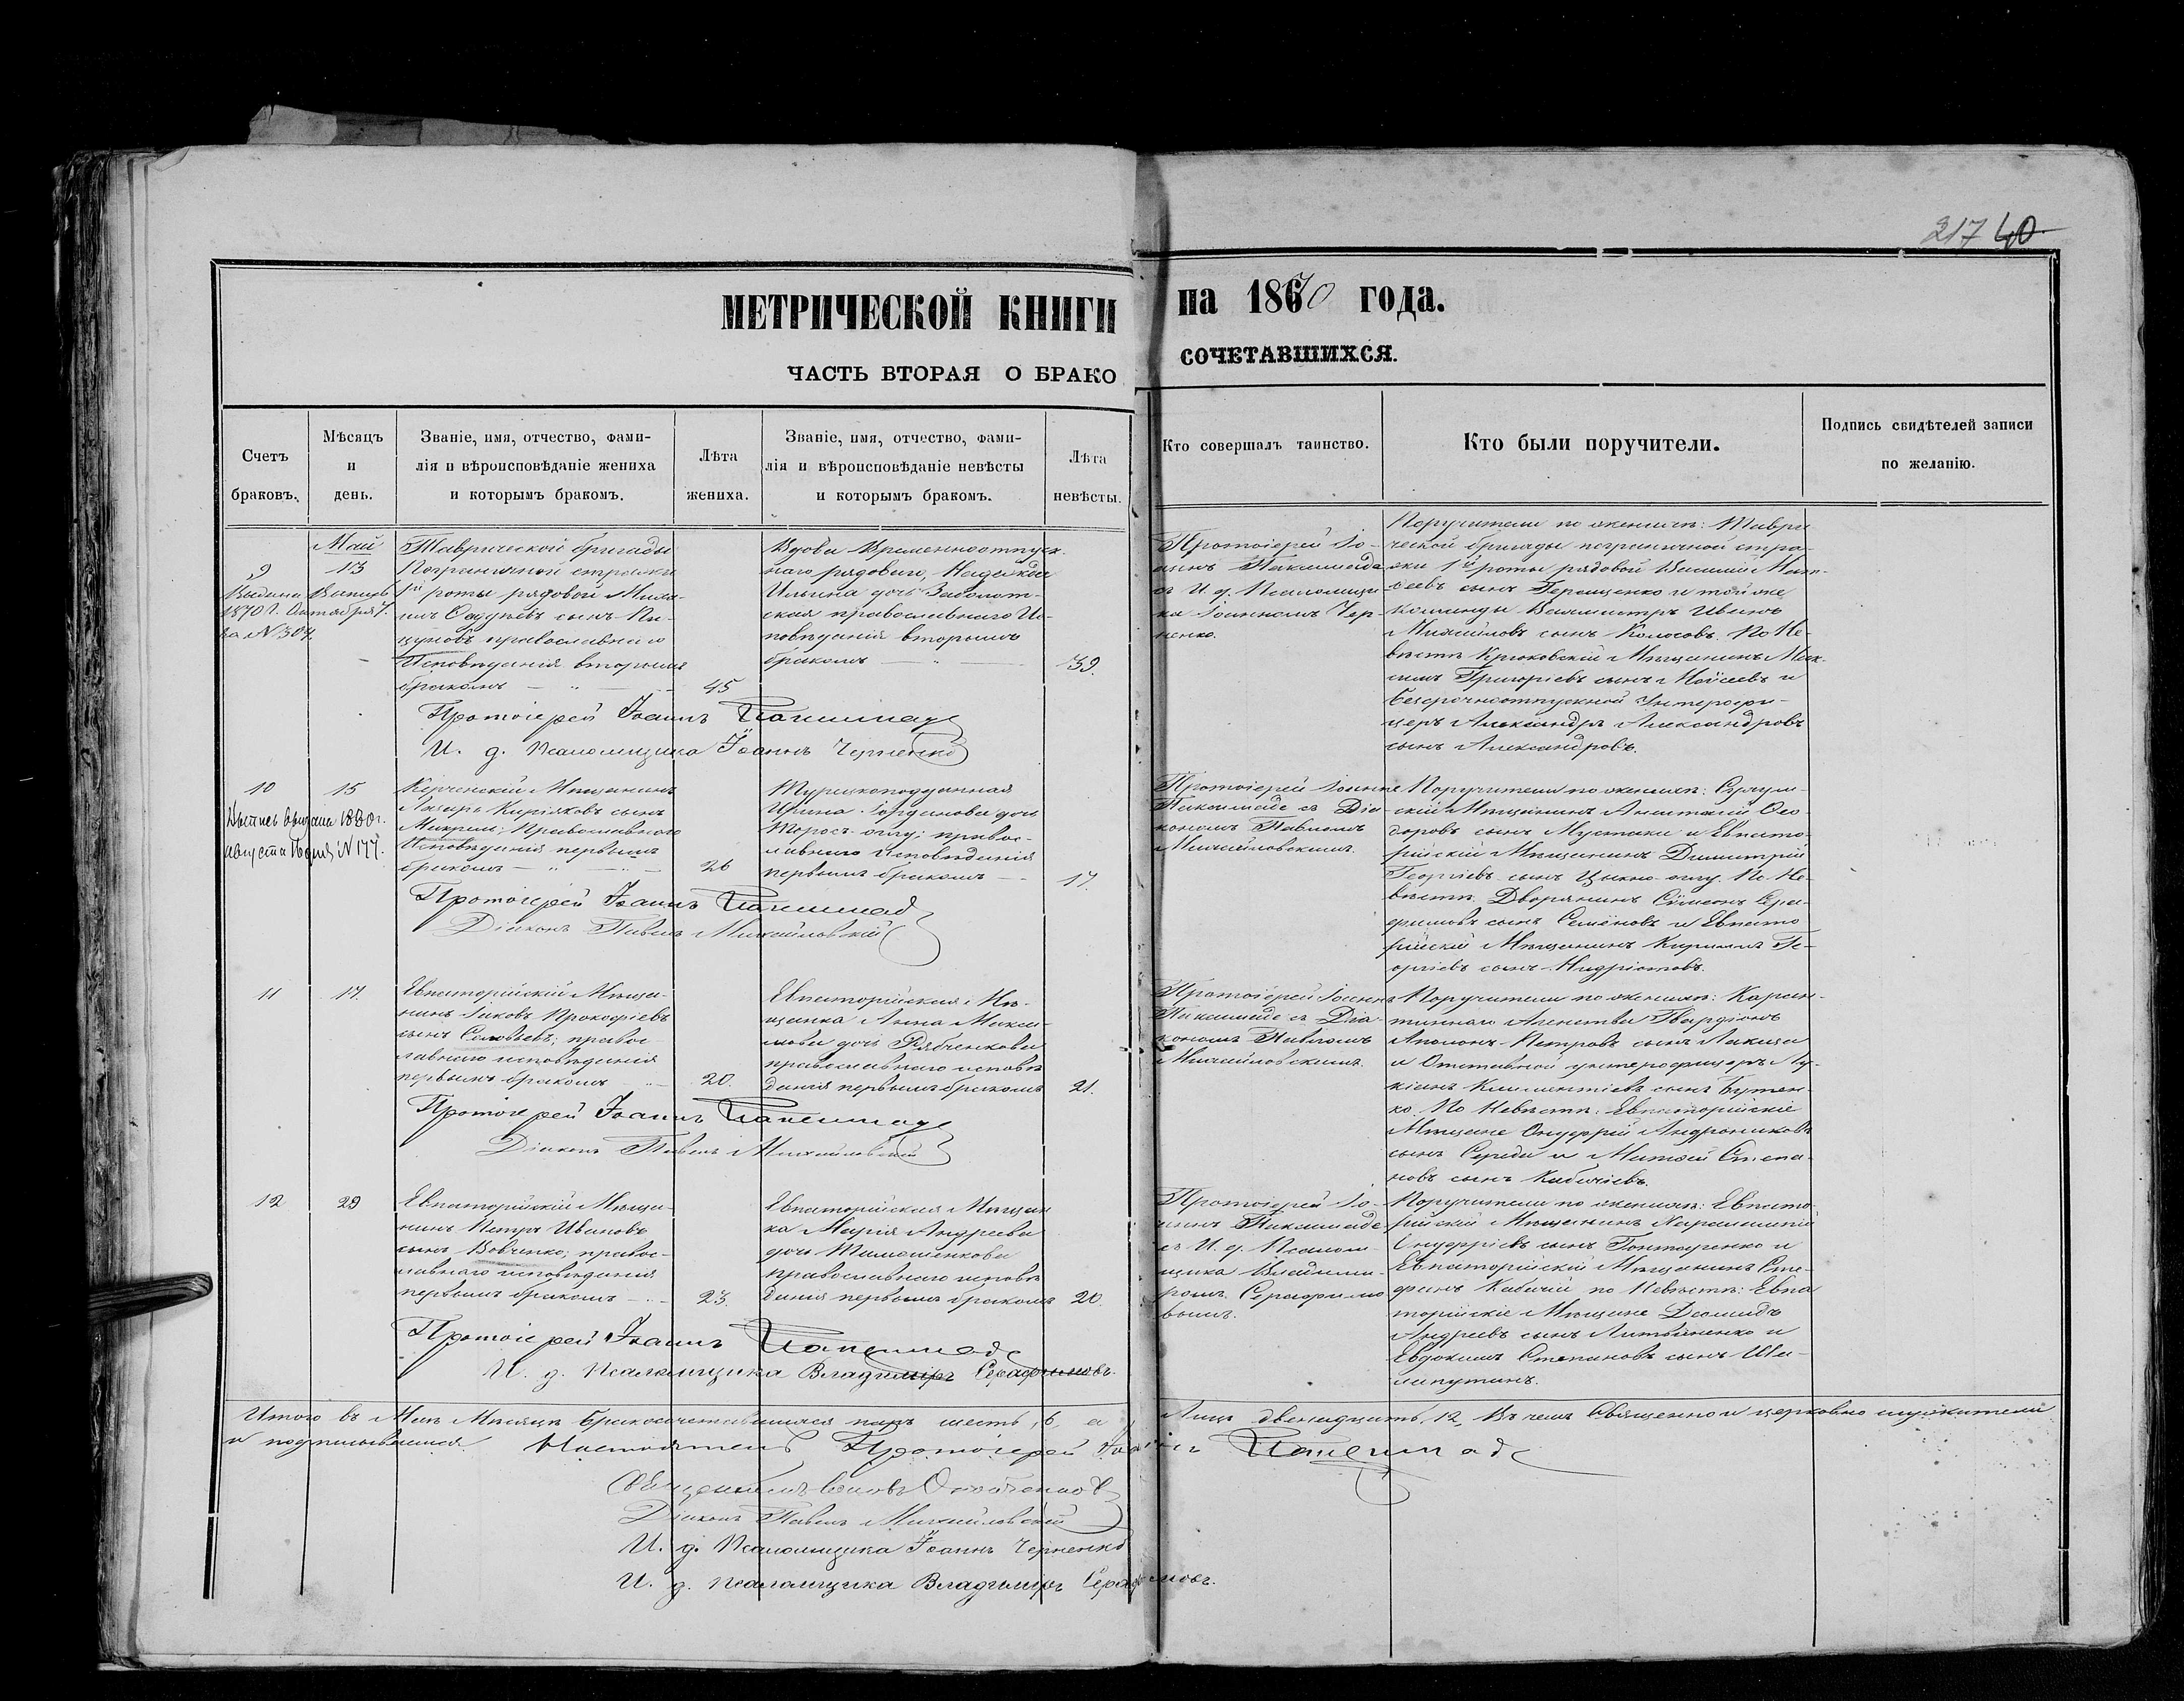 217 40
МЕТРИЧЕСКОЙ КНИГИ на 1870 года.
ЧАСТЬ ВТОРАЯ О БРАКО СОЧЕТАВШИХСЯ.
Счетъ
браковъ.
Мѣсяцъ
и
день.
Званіе, имя, отчество, фами-
лія и вѣроисповѣданіе жениха
и которымъ бракомъ.
Лѣта
жениха.
Званіе, имя, отчество, фами-
лія и вѣроисповѣданіе невѣсты
и которымъ бракомъ.
Лѣта
невѣсты.
Кто совершалъ таинство.
Кто были поручители.
Подпись свидѣтелей записи
по желанію.
9
Выдана Выпись
1870 г. Октября 7.
за N 304.
Май
13
Таврической бригады
Пограничной стражи
1й роты рядовой Миха-
илъ сынъ
православнаго
Исповѣданія вторымъ
бракомъ
45
Вдова Временноотпуск-
наго рядоваго, Надежда
Ильина дочь Заболот-
ская православнаго Ис-
повѣданія вторымъ
бракомъ
39.
Протоіерей Іо-
аннъ
съ И. д. Псаломщи-
ка Іоанномъ Чер-
ненко.
Поручители по женихѣ: Таври-
ческой бригады пограничной стра-
жи 1й роты рядовой Василій Мат-
ѳеевъ сынъ Геращенко и той же
команды Вахмистръ Иванъ
Михайловъ сынъ Колосовъ. По Не-
вѣстѣ Крюковскій Мѣщанинъ Мак-
симъ Григорьевъ сынъ Моисеевъ и
безсрочноотпускной Унтерофи-
церъ Александръ Александровъ
сынъ Александровъ.
Протоіерей Іоаннъ
И. д. Псаломщика Іоаннъ Черненко
10
Выпись выдана 1880 г.
августа 16 дня N 177.
15
Керченскій Мѣщанинъ
Лазарь Киріяковъ сынъ
Православнаго
Исповѣданія первымъ
бракомъ
26
Турецкоподданная
Ирина Іорданова дочь
Торосъ-оглу; правос-
лавнаго Исповѣданія
первымъ бракомъ
17.
Протоіерей Іоаннъ
съ Діа-
кономъ Павломъ
Михайловскимъ.
Поручители по женихѣ:
Мѣщанинъ Анастасій Ѳео-
доровъ сынъ и Евпато-
рійскій Мѣщанинъ Димитрій
Георгіевъ сынъ оглу. По Не-
вѣстѣ: Дворянинъ Симеонъ Сера-
фимовъ сынъ Семёновъ и Евпато-
рійскій Мѣщанинъ Кириллъ Ге-
оргіевъ сынъ
Протоіерей Іоаннъ
Діаконъ Павелъ Михайловскій
11
17.
Евпаторійскій Мѣща-
нинъ Іаковъ Прокофіевъ
сынъ Соловьевъ; правос-
лавнаго исповѣданія
первымъ бракомъ
20.
Евпаторійская Мѣ-
щанка Анна Макси-
мова дочь Рябченкова
православнаго исповѣ-
данія первымъ бракомъ
21.
Протоіерей Іоаннъ
съ Діа-
кономъ Павломъ
Михайловскимъ.
Поручители по женихѣ: Каран-
тиннаго Агентства Гвардіонъ
Аполонъ Петровъ сынъ
и Отставной унтерофицеръ Лу-
кіанъ Климентіевъ сынъ Бутен-
ко. По Невѣстѣ: Евпаторійскіе
Мѣщане Онуфрій Андрониковъ
сынъ Середа и Матвѣй Степа-
новъ сынъ
Протоіерей Іоаннъ
Діаконъ Павелъ Михайловскій
12
29
Евпаторійскій Мѣща-
нинъ Петръ Ивановъ
сынъ Вовченко; правос-
лавнаго исповѣданія
первымъ бракомъ
23.
Евпаторійская Мѣщан-
ка Марія Андреева
дочь Тимошенкова
православнаго исповѣ-
данія первымъ бракомъ
20.
Протоіерей Іо-
аннъ
съ И. д. Псалом-
щика Владими-
ромъ Серафимо-
вымъ.
Поручители по женихѣ: Евпато-
рійскій Мѣщанинъ Харлампій
Онуфріевъ сынъ Гонтаренко и
Евпаторійскій Мѣщанинъ Сте-
фанъ по Невѣстѣ: Евпа-
торійскіе Мѣщане Діомидъ
Андреевъ сынъ Литвиненко и
Евдокимъ Степановъ сынъ Ша-
лапутинъ.
Протоіерей Іоаннъ
И. д. Псаломщика Владиміръ Серафимовъ.
Итого въ Маѣ Мѣсяцѣ бракосочетавшихся паръ шесть, 6, а лицъ двенадцать, 12. Въ чемъ Священно и церковно служители
и подписываемся. Настоятель Протоіерей Іоаннъ
Діаконъ Павелъ Михайловскій
И. д. Псаломщика Іоаннъ Черненко
И. д. псаломщика Владиміръ Серафимовъ.